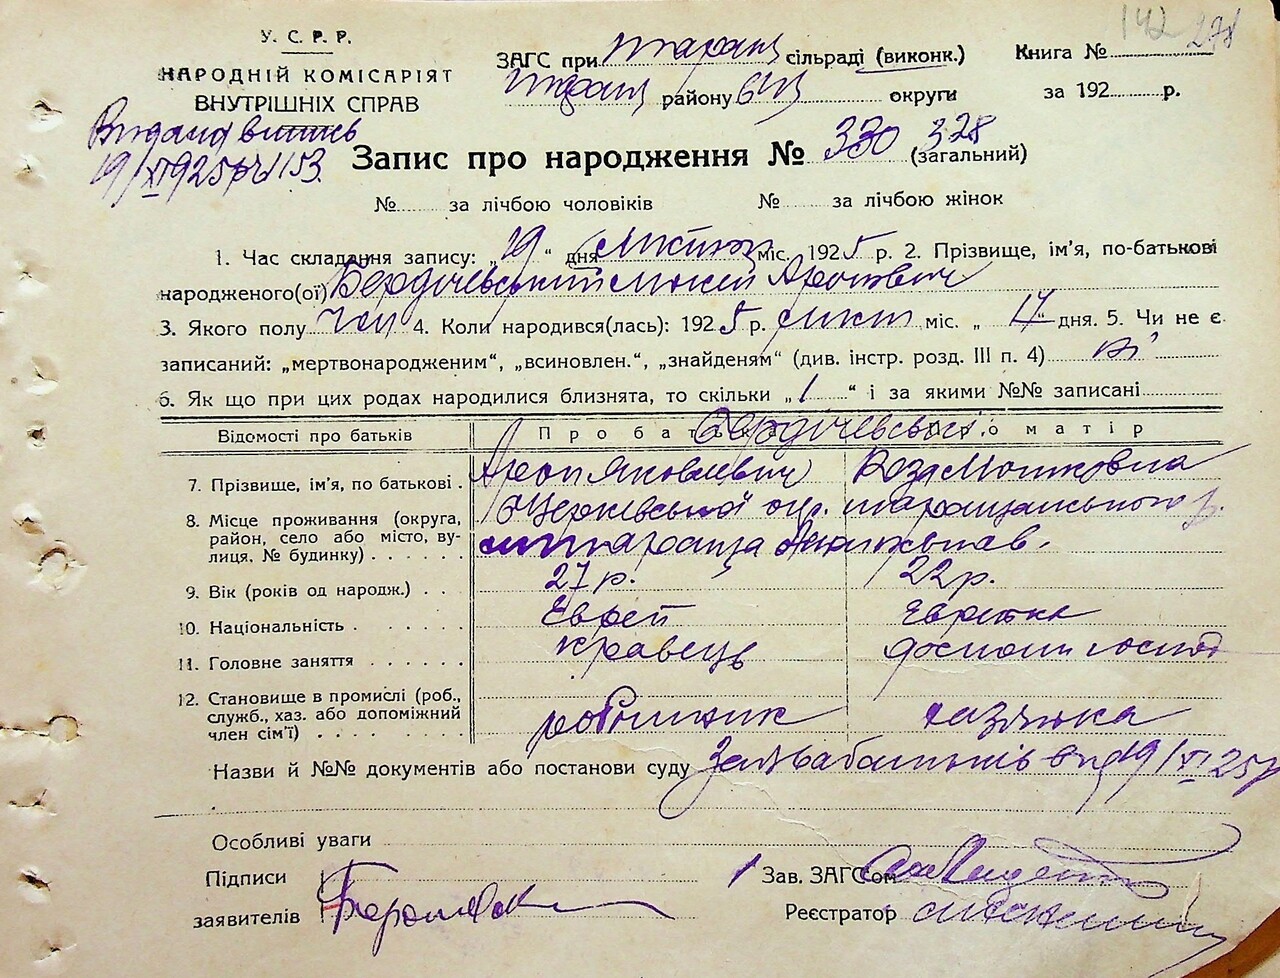 142 278
У. С. Р. Р.
НАРОДНІЙ КОМІСАРІЯТ
ВНУТРІШНІХ СПРАВ
ЗАГС при Таращ сільраді (виконк.)
Таращ району БЦ округи
Книга №
за 192 р.
Видана випись
19/XI 925 р № 1153.
Запис про народження № 330 328 (загальний)
№ за лічбою чоловіків № за лічбою жінок
1. Час складання запису: „19“ дня міс. 1925 р. 2. Прізвище, ім'я, по-батькові
народженого(ої) Бердичевський Мокей Аронович
3. Якого полу чол 4. Коли народився(лась): 1925 р. лист міс. „17“ дня. 5. Чи не є
записаний: „мертвонародженим“, „всиновлен.“, „знайденям“ (див. інстр. розд. III п. 4) ні
6. Як що при цих родах народилися близнята, то скільки „1“ і за якими №№ записані
Відомості про батьків Про батька Про матір
Бердичевські
7. Прізвище, ім'я, по батькові. Арон Яковлевич Роза Мошковна
8. Місце проживання (округа, Б Церківської окр. Таращанського р.
район, село або місто, ву- Тараща
лиця, № будинку)
9. Вік (років од народж.) 27 р. 22 р.
10. Національність Єврей Єврейка
11. Головне заняття кравець
12. Становище в промислі (роб., робітник хазяйка
служб., хаз. або допоміжний
член сім'ї)
Назви й №№ документів або постанови суду Заява батьків від 19/XI 25 р
Особливі уваги
Підписи
заявителів
Зав. ЗАГСом
Реєстратор